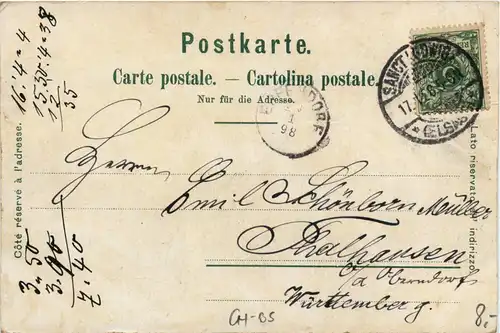 Postkarte.
Carte postale. — Cartolina postale.
Nur für die Adresse.
SANCT LUDWIG
(ELSASS)
98
Herrn
Emil Schönborn Müller
Thalhausen
o/a Oberndorf
Württemberg.
Côté réservé à l'adresse.
Lato riservato indirizzo
16.'4=4
15.30.'4=38
12
35
3=50
3.90
7.40
CH-BS
8,-